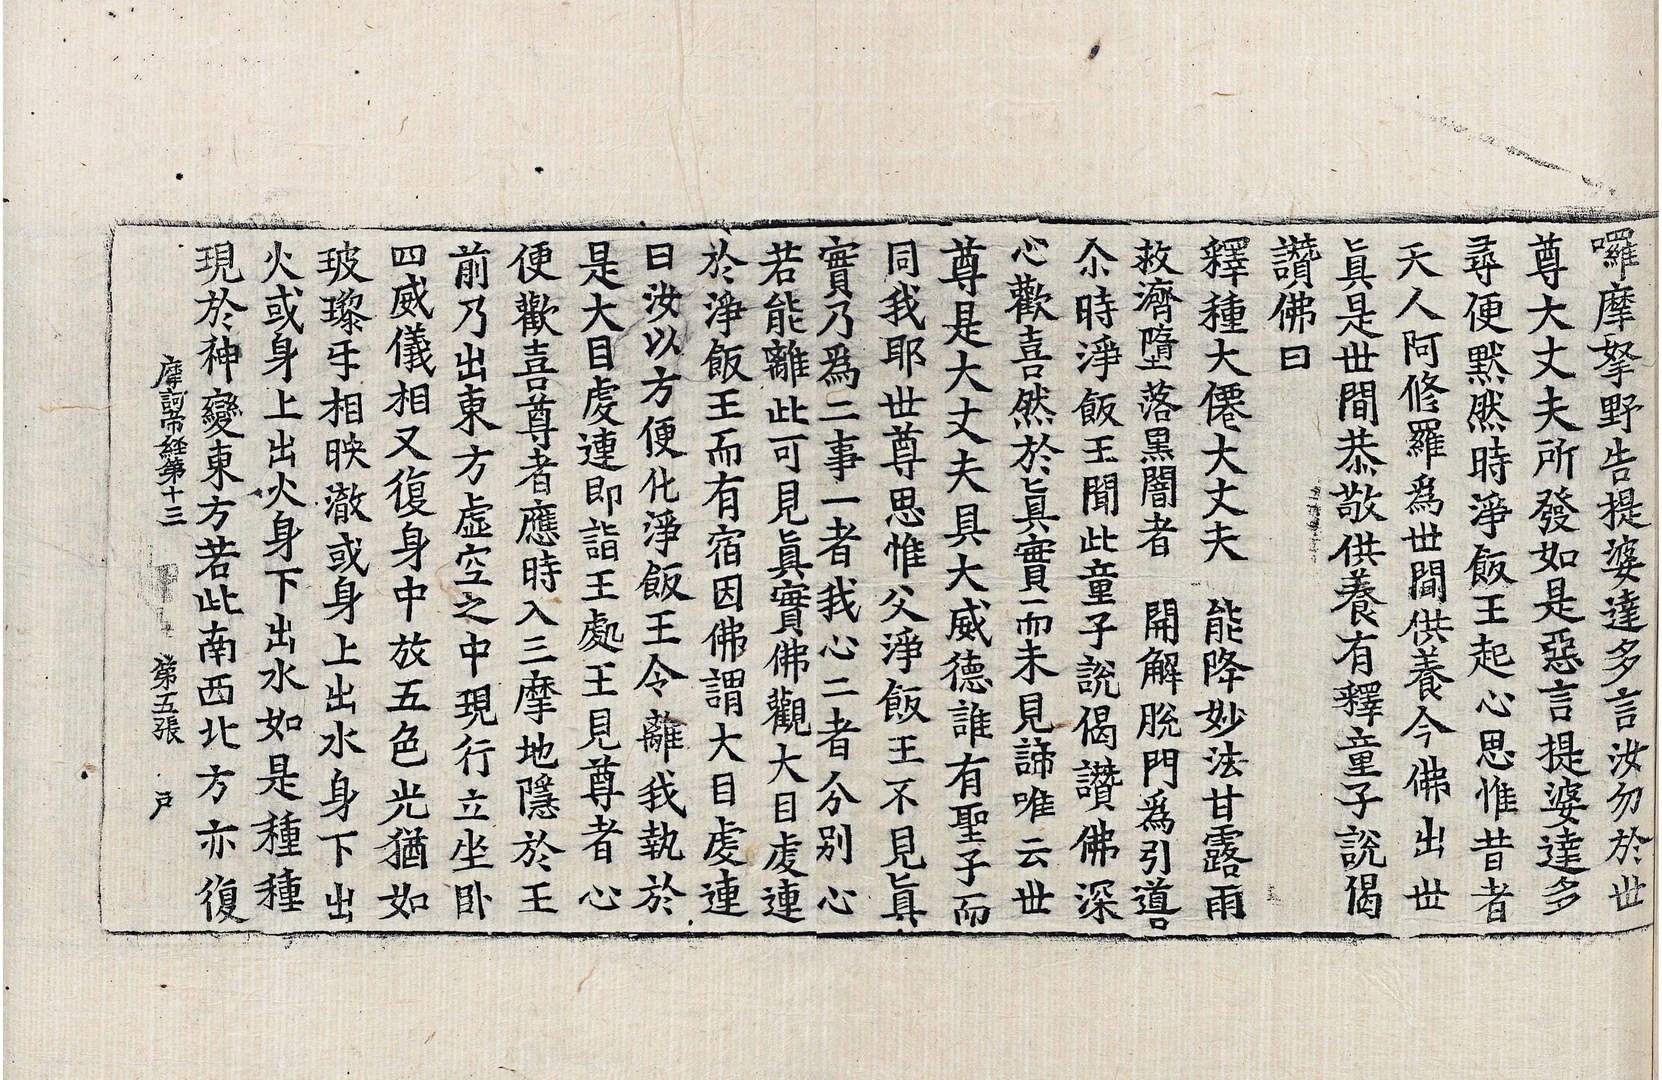 囉摩拏野告提婆達多言汝勿於世
尊大丈夫所發如是惡言提婆達多
尋便默然時淨飯王起心思惟昔者
天人阿修羅爲世間供養今佛出世
眞是世間恭敬供養有釋童子說偈
讚佛曰
釋種大僊大丈夫　能降妙法甘露雨
救濟墮落黑闇者　開解脫門爲引導
尒時淨飯王聞此童子說偈讚佛深
心歡喜然於眞實而未見諦唯云世
尊是大丈夫具大威德誰有聖子而
同我耶世尊思惟父淨飯王不見眞
實乃爲二事一者我心二者分別心
若能離此可見眞實佛觀大目虔連
於淨飯王而有宿因佛謂大目虔連
曰汝以方便化淨飯王令離我執於
是大目虔連即詣王處王見尊者心
便歡喜尊者應時入三摩地隱於王
前乃出東方虛空之中現行立坐卧
四威儀相又復身中放五色光猶如
玻瓈牙相映澈或身上出水身下出
火或身上出火身下出水如是種種
現於神變東方若此南西北方亦復
摩訶帝經第十三　第五張　戸